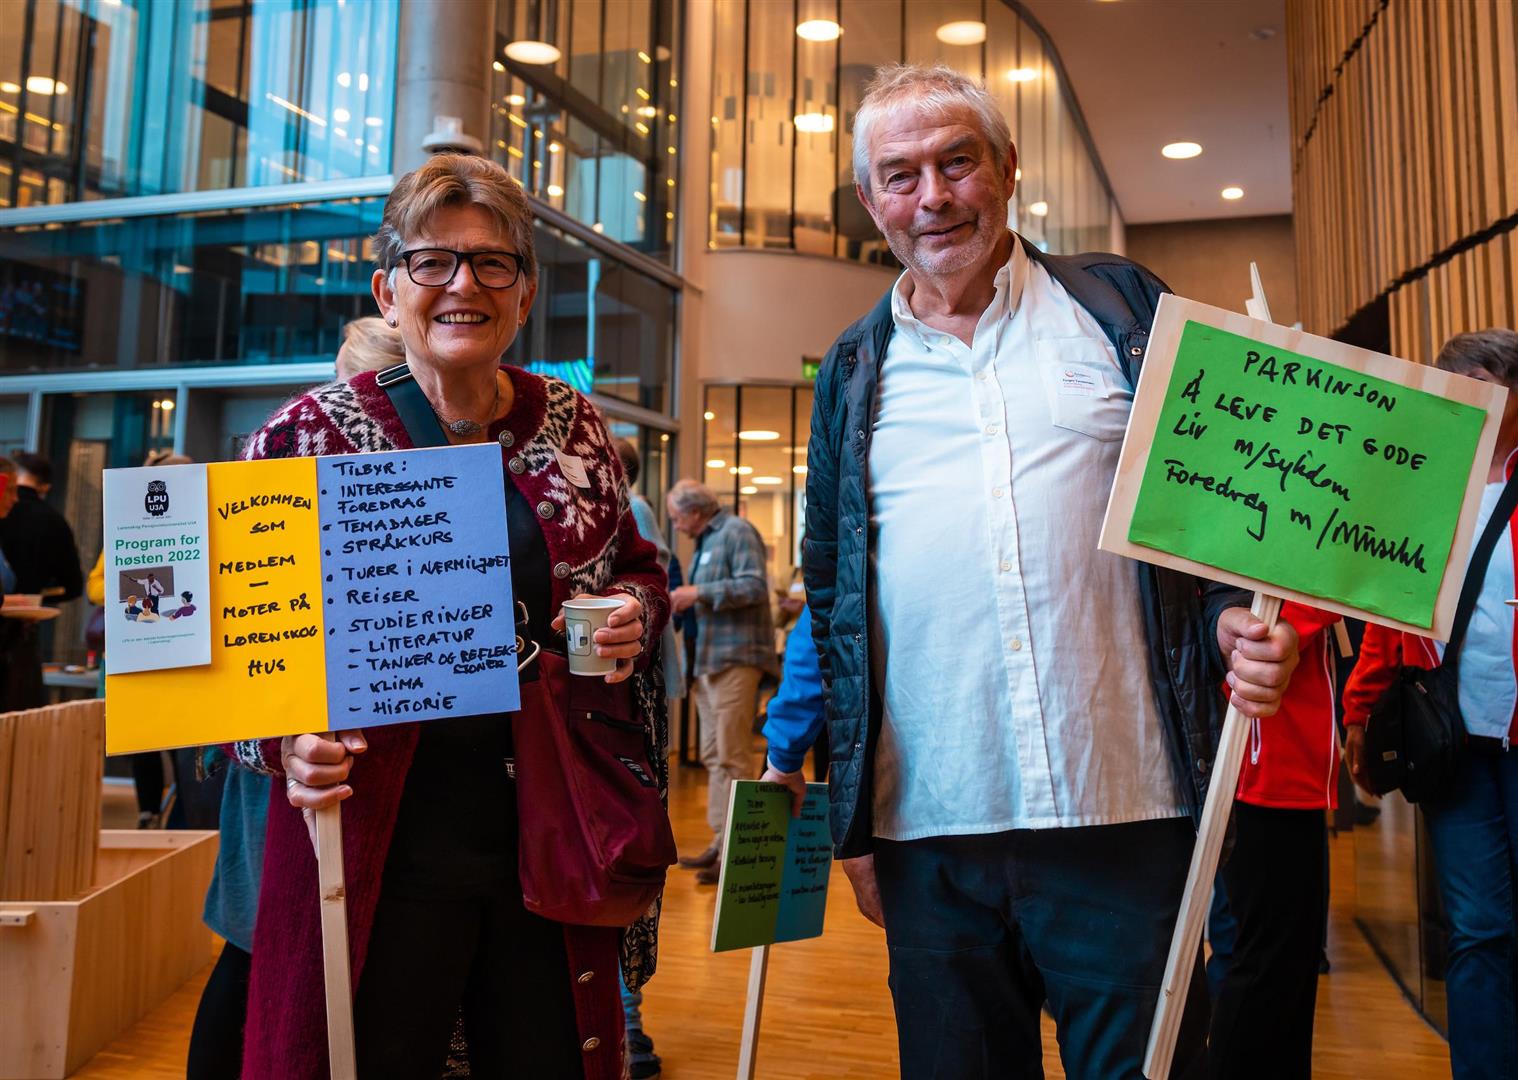 LPU
U3A
Lørenskog Pensjonistuniversitet U3A
Program for
høsten 2022
VELKOMMEN
SOM
MEDLEM
—
MØTER PÅ
LØRENSKOG
HUS
TILBYR:
• INTERESSANTE
FOREDRAG
• TEMADAGER
• SPRÅKKURS
• TURER I NÆRMILJØET
• REISER
• STUDIERINGER
- LITTERATUR
- TANKER OG REFLEK-
SJONER
- KLIMA
- HISTORIE
PARKINSON
Å LEVE DET GODE
LIV m/Sykdom
Foredrag m/Musikk
TILBYR
Aktivitet for